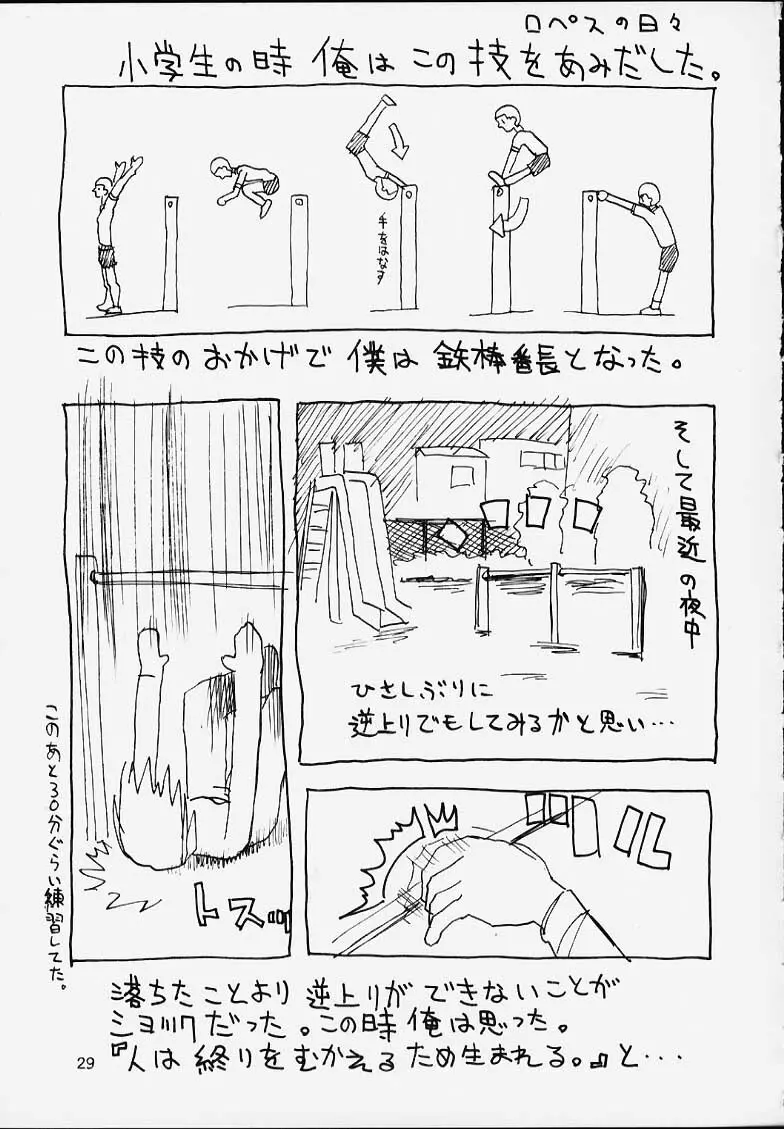 ロペスの日々
小学生の時 俺は この技をあみだした。
手をはなす
この技のおかげで 僕は 鉄棒番長となった。
そして最近の夜中
ひさしぶりに
逆上りでもしてみるかと思い・・・
ツルル
トスッ
このあと30分ぐらい練習してた。
落ちたことより 逆上りが できないことが
ショックだった。この時 俺は思った。
『人は 終りを むかえる ため生まれる。』と・・・
29